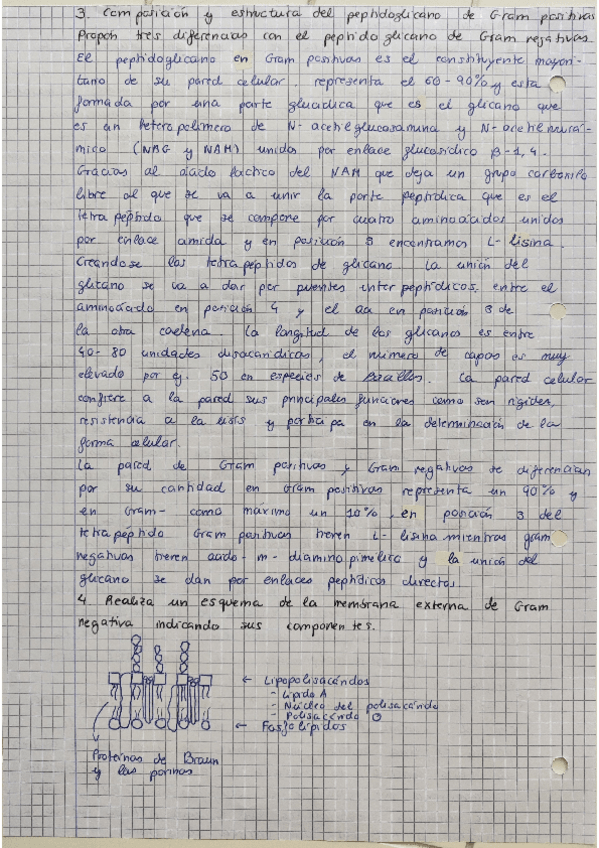 3. Composición y estructura del peptidoglicano de Gram positivas
Propón tres diferencias con el peptidoglicano de Gram negativas.
El peptidoglicano en Gram positivas es el constituyente mayori-
tario de su pared celular. representa el 60-90% y esta
formada por una parte glucidica que es el glicano que
es un heteropolimero de N-acetilglucosamina y N-acetilmurá-
mico (NAG y NAM) unidos por enlace glucosídico β-1,4.
Gracias al ácido láctico del NAM que deja un grupo carbonilo
libre al que se va a unir la parte peptídica que es el
tetrapéptido que se compone por cuatro aminoácidos unidos
por enlace amida y en posición 3 encontramos L-lisina.
Creandose los tetrapéptidos de glicano. La unión del
glicano se va a dar por puentes interpeptídicos, entre el
aminoácido en posición 4 y el aa en posición 3 de
la otra cadena. La longitud de los glicanos es entre
40-80 unidades disacarídicas, el número de capas es muy
elevado por ej. 50 en especies de Bacillos. La pared celular
confiere a la pared sus principales funciones como son rigidez,
resistencia a la lisis y participa en la determinación de la
forma celular.
La pared de Gram positivas y Gram negativas se diferencian
por su cantidad en Gram positivas representa un 90% y
en Gram- como máximo un 10%, en posición 3 del
tetrapéptido Gram positivas tienen L-lisina mientras gram
negativas tienen acido-m-diaminopimélico y la unión del
glicano se dan por enlaces peptídicos directos.
4. Realiza un esquema de la membrana externa de Gram
negativa indicando sus componentes.
← Lipopolisacáridos
- Lípido A
- Núcleo del polisacárido
- Polisacárido O
← Fosfolípidos
Proteínas de Braun
y las porinas